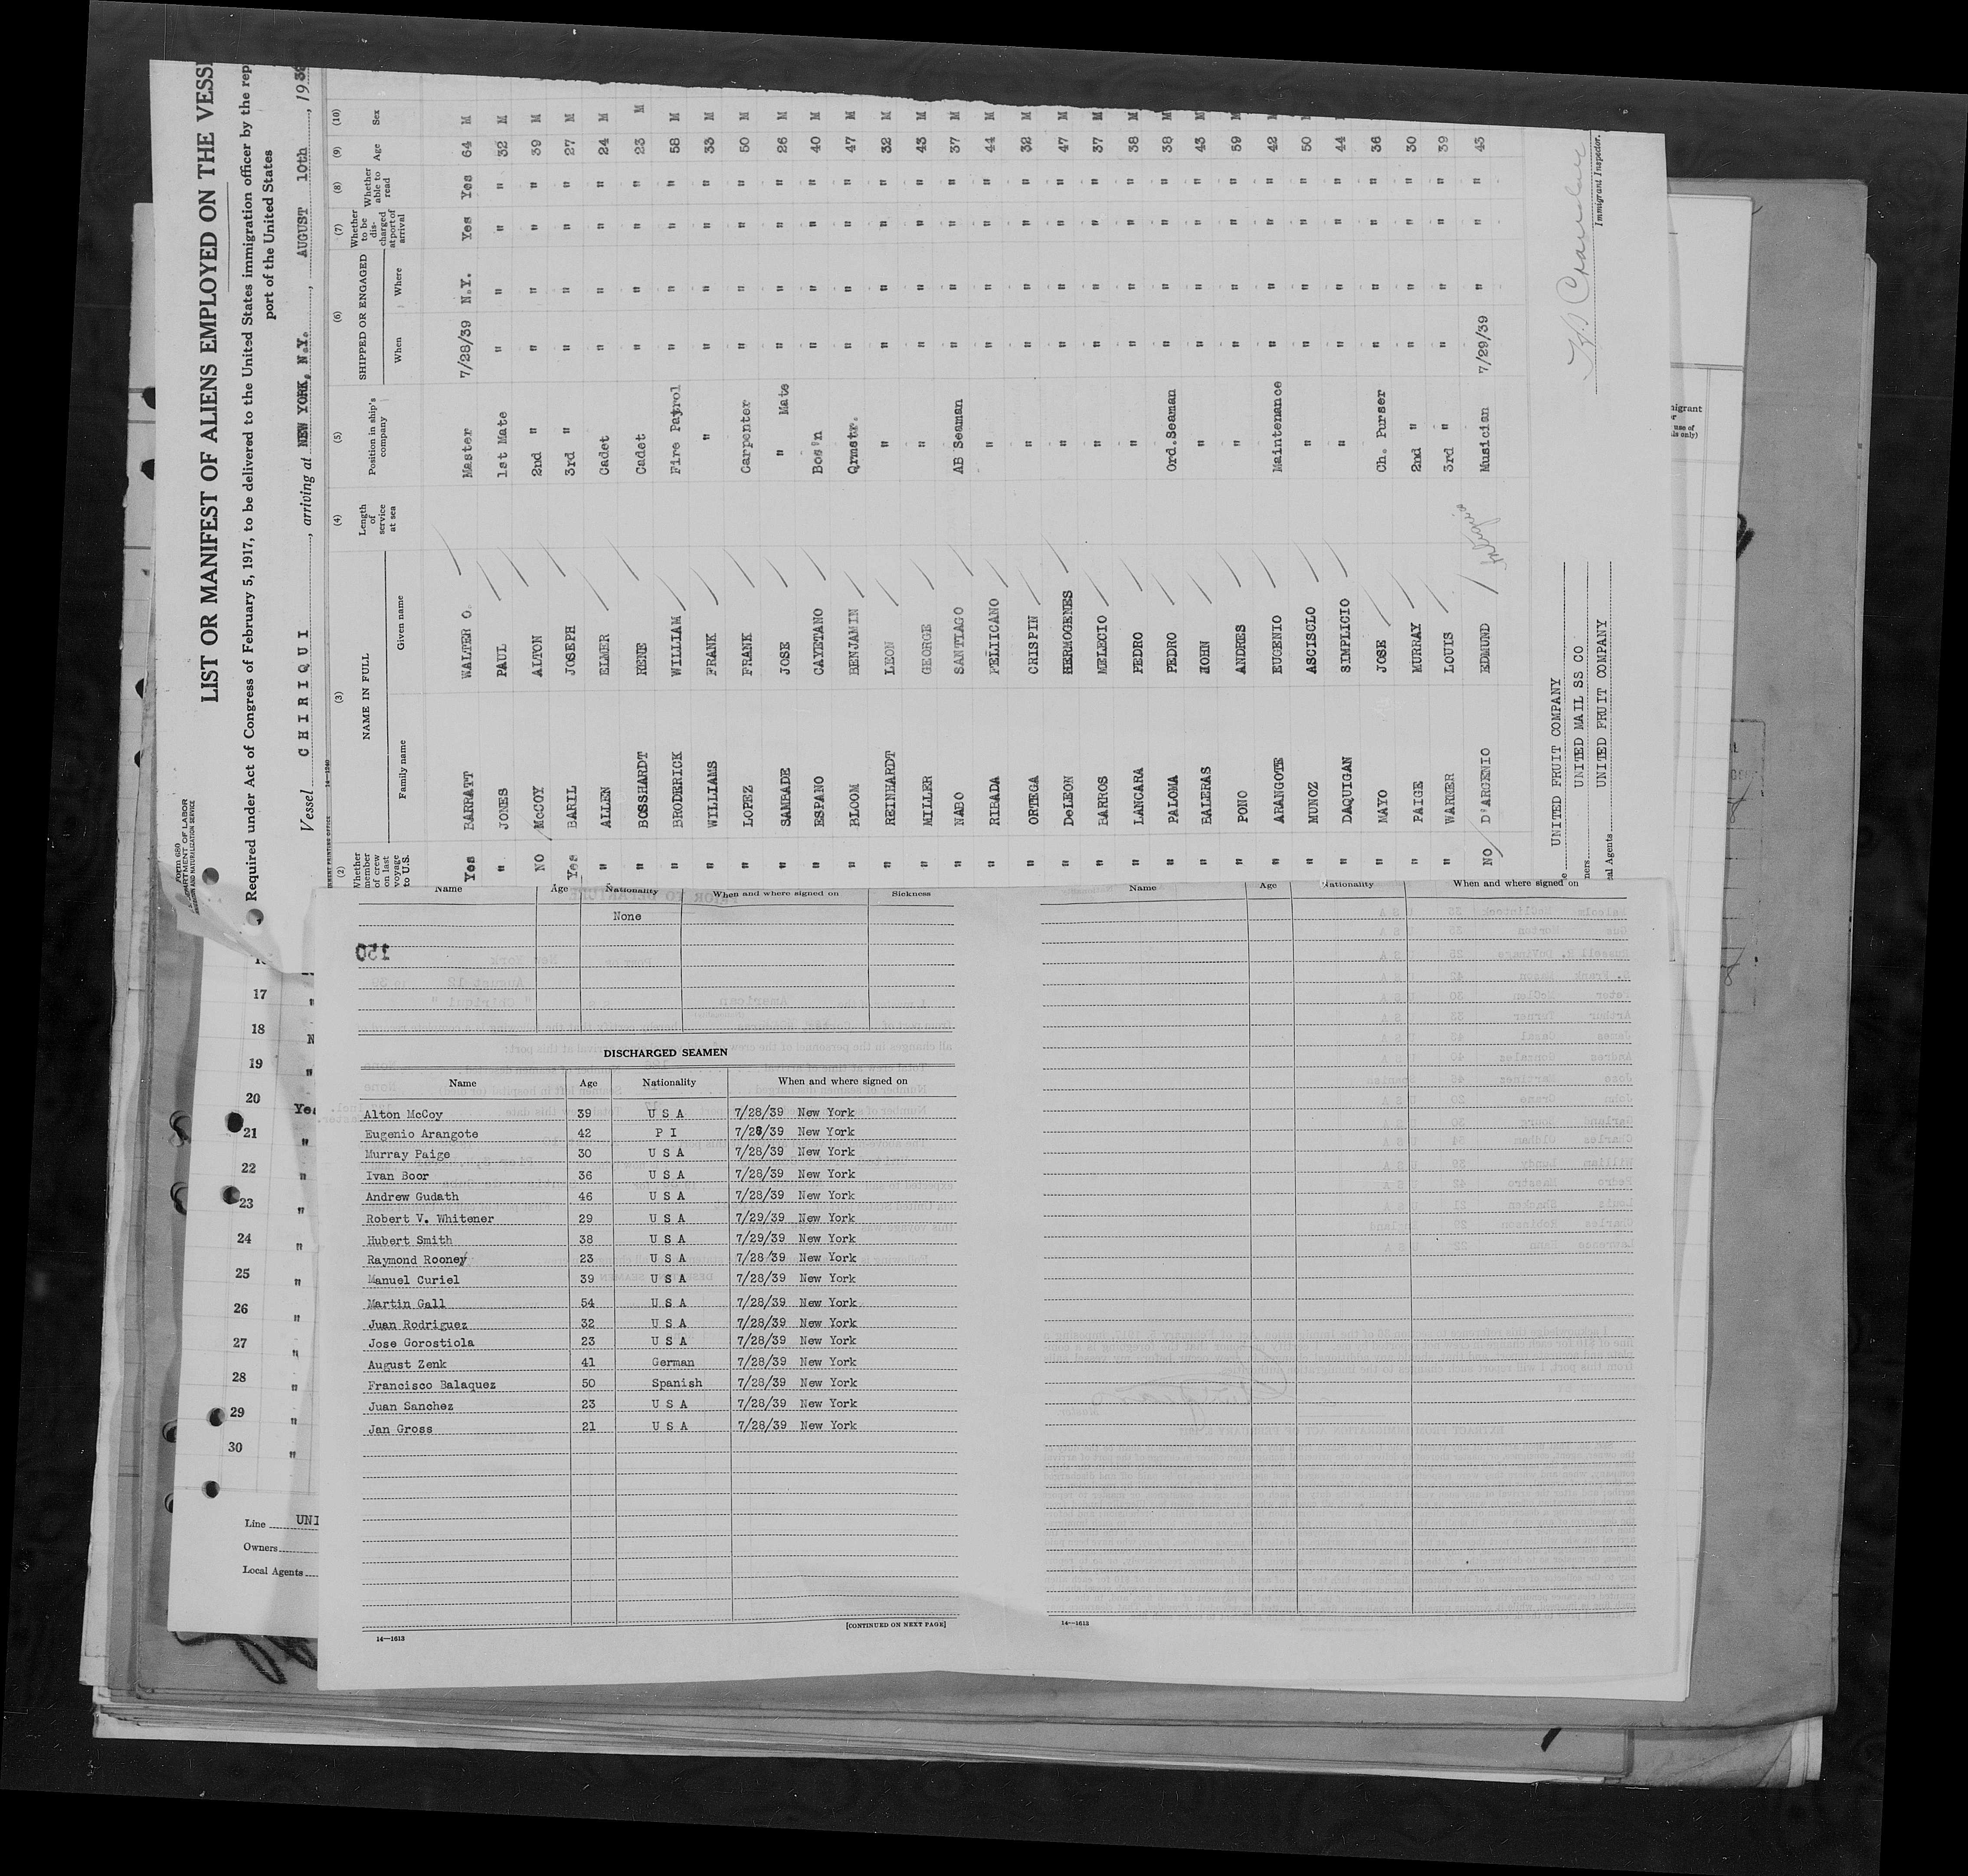 Form 680
LIST OR MANIFEST OF ALIENS EMPLOYED ON THE VESS
Required under Act of Congress of February 5, 1917, to be delivered to the United States immigration officer by the rep
port of the United States
Vessel CHIRIQUI, arriving at NEW YORK, N.Y., AUGUST 10th, 193
(2) (3) (4) (5) (6) (7) (8) (9) (10)
Whether member of crew on last voyage to U.S. NAME IN FULL Family name Given name Length of service at sea Position in ship's company SHIPPED OR ENGAGED When Where Whether to be discharged at port of arrival Whether able to read Age Sex
Yes BARRATT WALTER O. Master 7/28/39 N.Y. Yes Yes 64 M
" JONES PAUL 1st Mate " " " " 32 M
NO McCOY ALTON 2nd " " " " " 39 M
Yes BARIL JOSEPH 3rd " " " " " 27 M
" ALLEN ELMER Cadet " " " " 24 M
" BOSSHARDT RENE Cadet " " " " 23 M
" BRODERICK WILLIAM Fire Patrol " " " " 58 M
" WILLIAMS FRANK " " " " " 33 M
" LOPEZ FRANK Carpenter " " " " 50 M
" SAMBADE JOSE " Mate " " " " 26 M
" ESPANO CAYETANO Bos'n " " " " 40 M
" BLOOM BENJAMIN Qrmstr. " " " " 47 M
" REINHARDT LEON " " " " " 32 M
" MILLER GEORGE " " " " " 43 M
" NABO SANTIAGO AB Seaman " " " " 37 M
" RIBADA FELIICANO " " " " " 44 M
" ORTEGA CRISPIN " " " " " 32 M
" DeLEON HERMOGENES " " " " " 47 M
" BARROS MELECIO " " " " " 37 M
" LANCARA PEDRO " " " " " 38 M
" PALOMA PEDRO Ord.Seaman " " " " 38 M
" BALERAS HOHN " " " " " 43 M
" PONO ANDRES " " " " " 59 M
" ARANGOTE EUGENIO Maintenance " " " " 42 M
" MUNOZ ASCISCLO " " " " " 50
" DAQUIGAN SIMPLICIO " " " " " 44
" MAYO JOSE Ch. Purser " " " " 36
" PAIGE MURRAY 2nd " " " " " 30
" WARNER LOUIS 3rd " " " " " 39
NO D'ARGENIO EDMUND Musician 7/29/39 " " " 43
UNITED FRUIT COMPANY
UNITED MAIL SS CO
UNITED FRUIT COMPANY
Immigrant Inspector.
17 "
18 N
19 "
20 Yes
21 "
22 "
23 "
24 "
25 "
26 "
27 "
28 "
29 "
30 "
Line UNI
Owners
Local Agents
Name Age Nationality When and where signed on Sickness
None
Name Age Nationality When and where signed on
DISCHARGED SEAMEN
Name Age Nationality When and where signed on
Alton McCoy 39 U S A 7/28/39 New York
Eugenio Arangote 42 P I 7/28/39 New York
Murray Paige 30 U S A 7/28/39 New York
Ivan Boor 36 U S A 7/28/39 New York
Andrew Gudath 46 U S A 7/28/39 New York
Robert V. Whitener 29 U S A 7/29/39 New York
Hubert Smith 38 U S A 7/29/39 New York
Raymond Rooney 23 U S A 7/28/39 New York
Manuel Curiel 39 U S A 7/28/39 New York
Martin Gall 54 U S A 7/28/39 New York
Juan Rodriguez 32 U S A 7/28/39 New York
Jose Gorostiola 23 U S A 7/28/39 New York
August Zenk 41 German 7/28/39 New York
Francisco Balaquez 50 Spanish 7/28/39 New York
Juan Sanchez 23 U S A 7/28/39 New York
Jan Gross 21 U S A 7/28/39 New York
[CONTINUED ON NEXT PAGE]
14—1613
14—1613